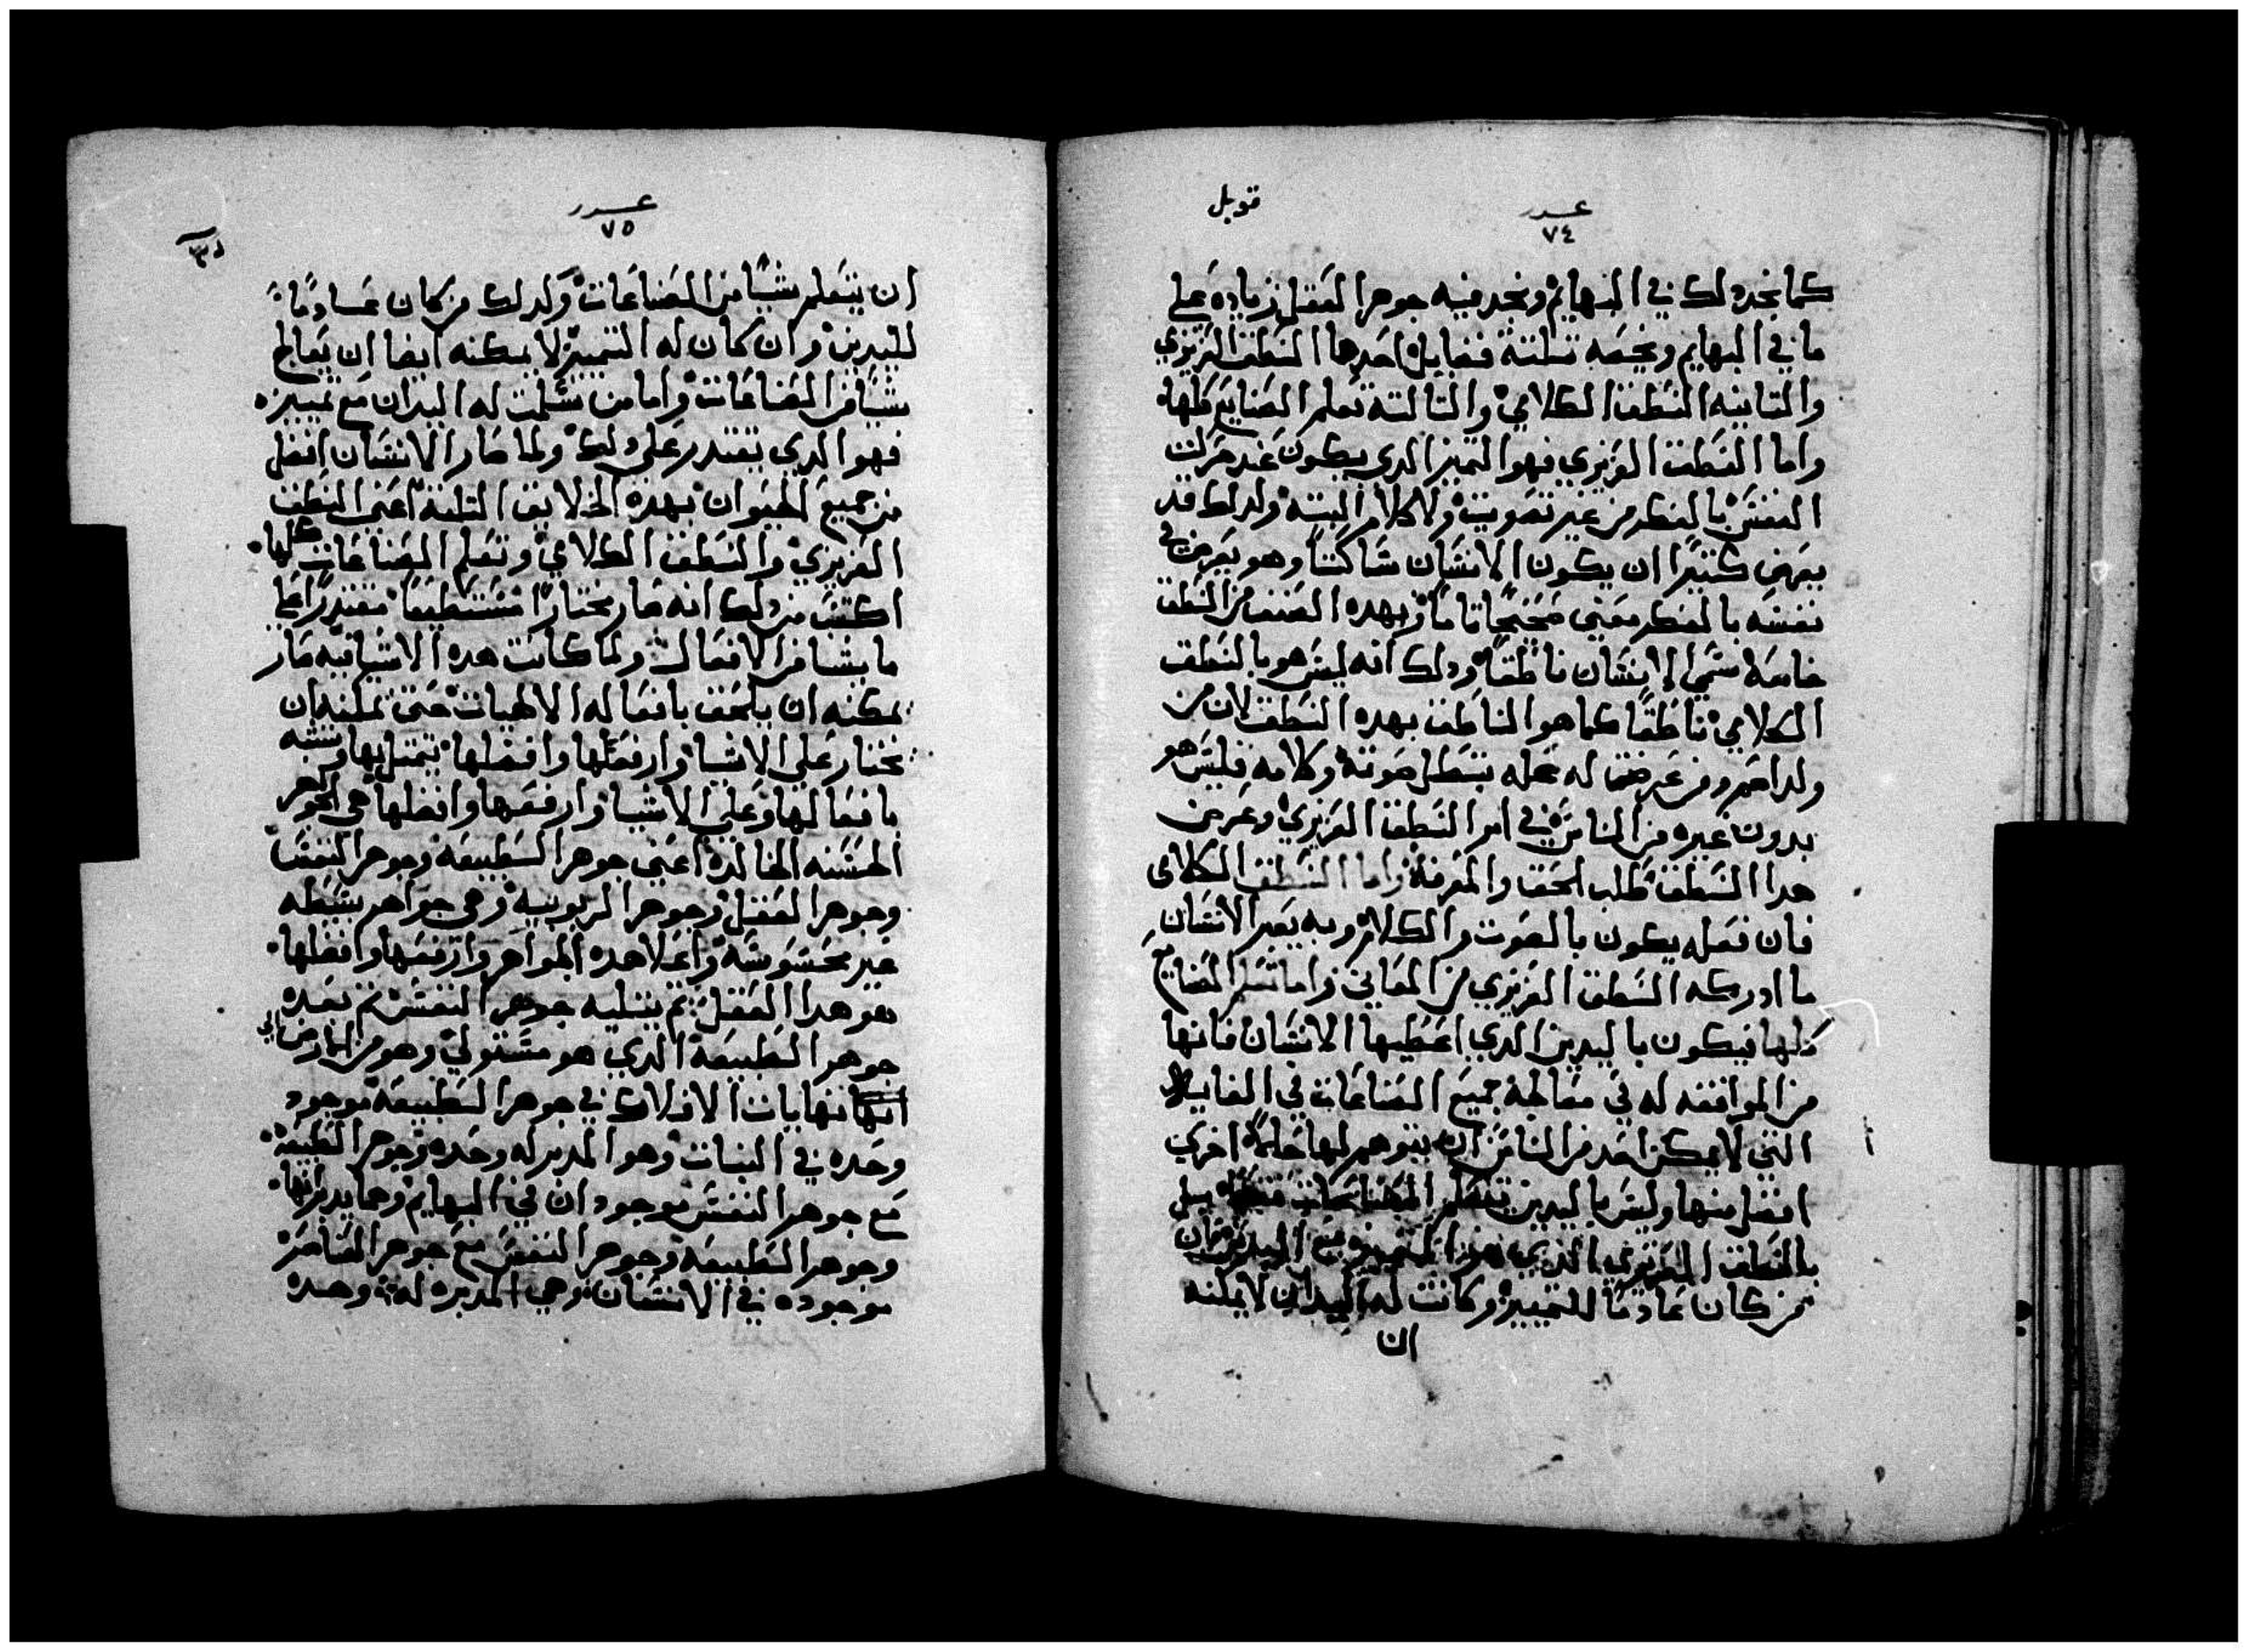 عدد
٧٤
قوبل
كما نجد دلك في البهايم ونجد فيه جوهر العقل زياده على
ما في البهايم ويخصه تلتة فضايل احدها النطق الغريزي
والتانيه النطق الكلامي والتالته تعلم الصنايع كلها
واما النطق الغريزي فهو التميز الدي يكون عند حركت
النفس بالفكر من غير تصويت ولا كلام البته ولدلك قد
يعرض كتيرا ان يكون الانسان ساكتا وهو يعرض في
نفسه بالفكر معني صحيحا تاما وبهده الصنف من النطق
خاصه سمي الانسان ناطقا ودلك انه ليس هو بالنطق
الكلامي ناطقا كما هو الناطق بهده النطق لان من
ولد اصم ومن عرضت له عله تبطل صوته وكلامه فليس هو
بدون غيره من الناس في امر النطق الغريزي وغرض
هدا النطق طلب الحق والمعرفة واما النطق الكلامي
فان فعله يكون بالصوت والكلام وبه يعبر الانسان
ما ادركه النطق الغريزي من المعاني واما تعلم الصنايع
كلها فيكون باليدين الدي اعطيها الانسان فانها
من الموافقه له في معالجة جميع الصناعات في الغايه
التي لا يمكن احد من الناس ان يتوهم لها حلة اخري
افضل منها وليس باليدين تتعلم الصناعات فقط بل
بالنطق الغريزي الدي هو التمييز مع اليدين فان
من كان عادما للتمييز وكانت له اليدان لا يمكنه
ان
عدد
٧٥
ان يتعلم شيا من الصناعات ولدلك من كان عادما
لليدين وان كان له التمييز لا يمكنه ايضا ان يعالج
شيا من الصناعات واما من سلمت له اليدان مع تمييزه
فهو الدي يقتدر على دلك ولما صار الانسان افضل
من جميع الحيوان بهده الخلايق التلتة اعني النطق
الغريزي والنطق الكلامي وتعلم الصناعات كلها
اكتسب من دلك انه صار مختارا مستطيعا مقتدرا علي
ما يشا من الافعال ولما كانت هده الاشيا فيه صار
يمكنه ان يلحق بافعاله الالهيات حتي يمكنه ان
يختار علي الاشيا وارفعها وافضلها يتمتل بها ويتشبه
بافعالها وعلي الاشيا وارفعها وافضلها هي الجواهر
الحسنه الخالدة اعني جوهر الطبيعه وجوهر النفس
وجوهر العقل وجوهر الربوبيه وهي جواهر بسيطه
غير محسوسه واعلا هده الجواهر وارفعها وافضلها
هو هدا العقل تم يتليه جوهر النفس تم بعده
جوهر الطبيعة الدي هو مستولي وهو من الارض الي
انها نهايات الافلاك في جوهر الطبيعة موجود
وحده في النبات وهو المدبر له وحده وجوهر الطبيعة
مع جوهر النفس موجودان في البهايم وهما يدبرانها
وجوهر الطبيعه وجوهر النفس مع جوهر العناصر
موجوده في الانسان وهي المدبره له وحده